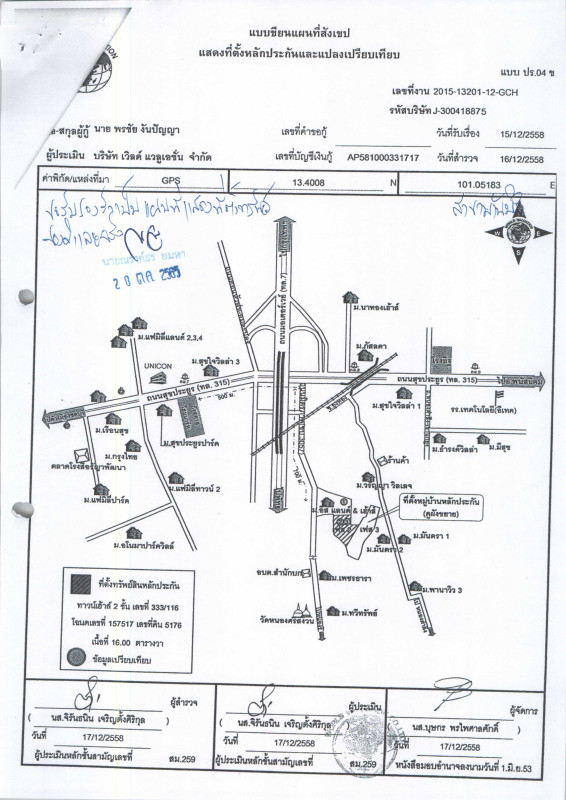 แบบเขียนแผนที่สังเขป
แสดงที่ตั้งหลักประกันและแปลงเปรียบเทียบ
แบบ ปร.04 ข.
เลขที่งาน 2015-13201-12-GCH
รหัสบริษัท J-300418875
-สกุลผู้กู้ นาย พรชัย งันปัญญา เลขที่คำขอกู้ วันที่รับเรื่อง 15/12/2558
ผู้ประเมิน บริษัท เวิลด์ แวลูเอชั่น จำกัด เลขที่บัญชีเงินกู้ AP581000331717 วันที่สำรวจ 16/12/2558
ค่าพิกัด/แหล่งที่มา GPS 13.4008 N 101.05183 E
นายณรงค์ธร ยมหา
20 ต.ค. 2565
N
W E
S
ถนนมอเตอร์เวย์ (ทล.7)
ม.นาทองเฮ้าส์
ม.แฟมิลี่แลนด์ 2,3,4
ม.กัสลดา
UNICON
ม.สุขใจวิลล่า 3
ถนนสุขประยูร (ทล. 315)
ถนนสุขประยูร (ทล. 315)
ไป อ.พนัสนิคม
500 ม.
ม.สุขใจวิลล่า 1
รร.เทคโนโลยี(อีเทค)
ม.เรือนสุข
ม.สุขประยูรปาร์ค
ม.กรุงไทย
ม.ธำรงค์วิลล่า
ม.มีสุข
ตลาดโรงสีอรัญพัฒนา
ร้านค้า
ม.แฟมิลี่ทาวน์ 2
ม.วรัญญา วิลเลจ
ม.แฟมิลี่ปาร์ค
ที่ตั้งหมู่บ้านหลักประกัน
(ดูผังขยาย)
ม.อิส แลนด์ & เฮ้าส์
เฟส 3
ม.มันตรา 1
ม.มันตรา 2
ม.อโนมาปาร์ควิลล์
อบต.สำนักบก
ม.เพชรธารา
ม.พานาวิว 3
ม.ทวีทรัพย์
วัดหนองศรีสงวน
ที่ตั้งทรัพย์สินหลักประกัน
ทาวน์เฮ้าส์ 2 ชั้น เลขที่ 333/116
โฉนดเลขที่ 157517 เลขที่ดิน 5176
เนื้อที่ 16.00 ตารางวา
ข้อมูลเปรียบเทียบ
ผู้สำรวจ
( นส.จิรันธนิน เจริญตั้งศิริกุล )
วันที่ 17/12/2558
ผู้ประเมินหลักชั้นสามัญเลขที่ สม.259
ผู้ประเมิน
( นส.จิรันธนิน เจริญตั้งศิริกุล )
วันที่ 17/12/2558
ผู้ประเมินหลักชั้นสามัญเลขที่ สม.259
ผู้จัดการ
( นส.บุษกร พรไพศาลศักดิ์ )
วันที่ 17/12/2558
หนังสือมอบอำนาจลงนามวันที่ 1.มิ.ย.53